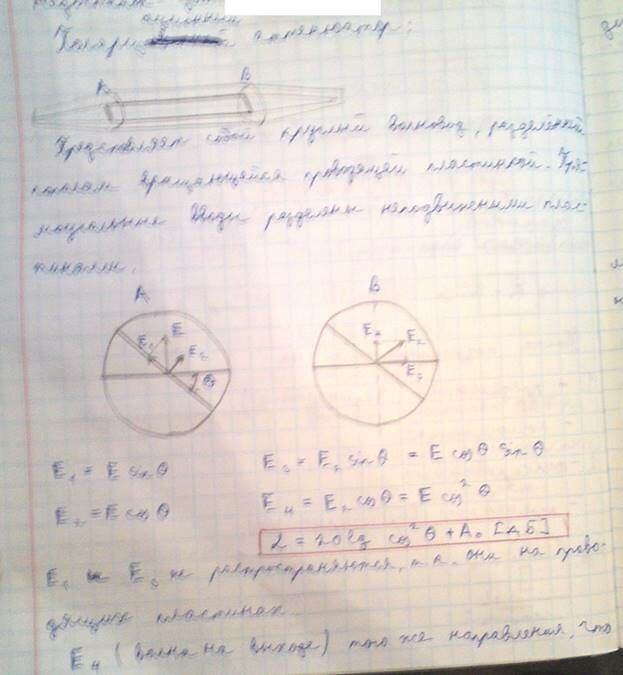 аттенюатор:
A B
Представляет собой круглый волновод, разделённый
вращающейся проводящей пластинкой.
входы разделены неподвижными плас-
тинами.
A B
E₁ E E₂ θ
E₄ E₂ E₃
E₁ = E sin θ E₃ = E₂ sin θ = E cos θ sin θ
E₂ = E cos θ E₄ = E₂ cos θ = E cos² θ
L = 20 lg cos² θ + A₀ [дБ]
E₁ и E₃ не распространяются, т.к. они на прово-
дящих пластинах
E₄ (волна на выходе) того же направления, что